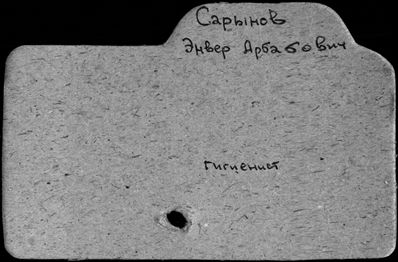 Сарынов
Энвер Арбабович
гигиенист